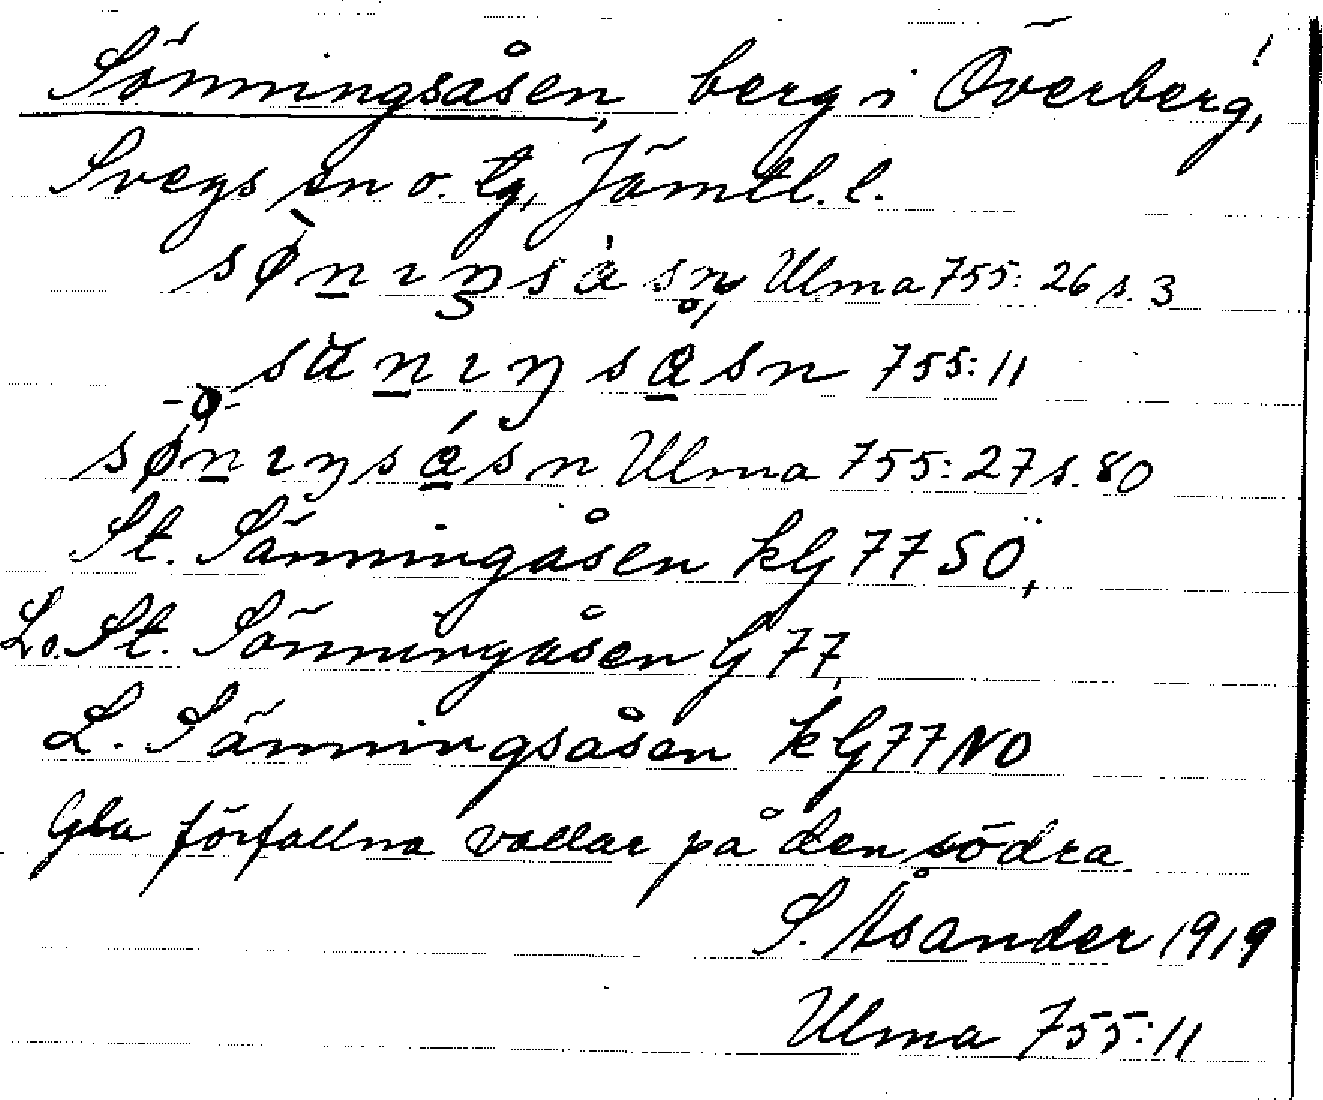 Sönningsåsen, berg i Överberg,
Svegs sn o. tg, Jämtl. l.
Ulma 755: 26 s. 3
755: 11
Ulma 755: 27 s. 80
St. Sänningåsen kG 77 SÖ,
L. o. St. Sönningåsen G 77,
L. Sänningsåsen kG 77 NO
Gla förfallna vallar på den södra
S. Åsander 1919
Ulma 755: 11